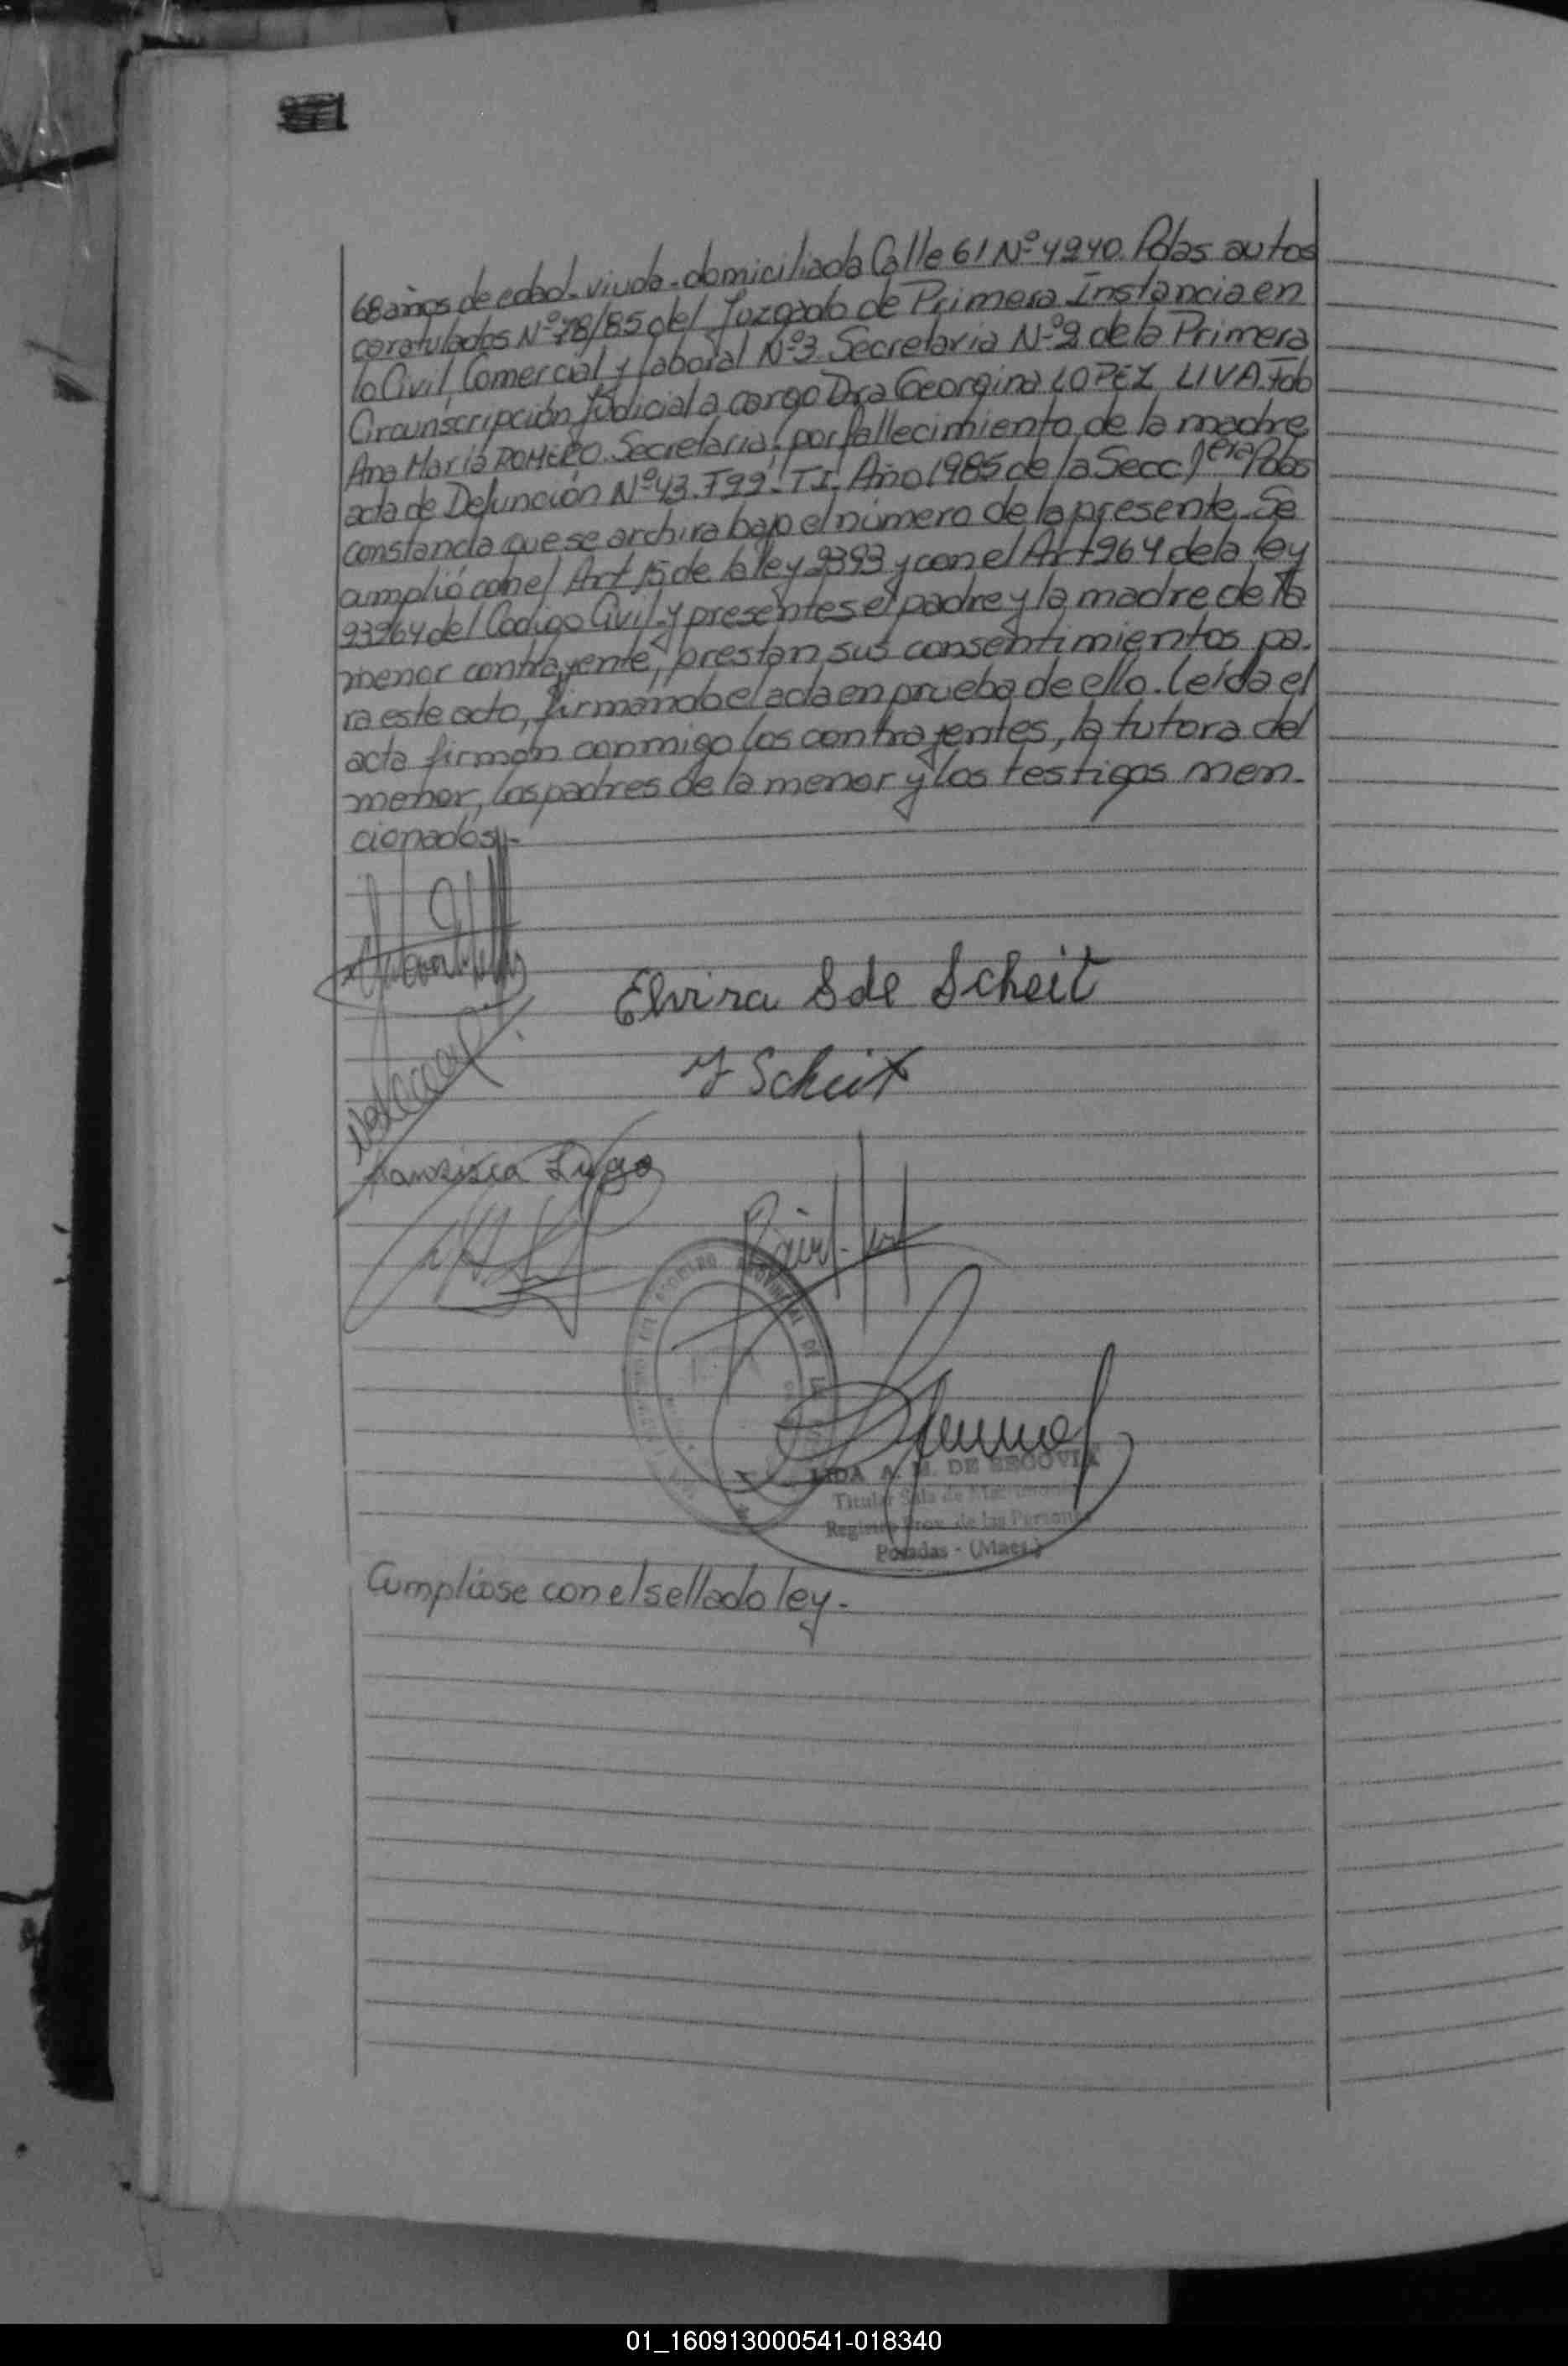 68 años de edad. viuda. domiciliada Calle 61 Nº 4240. Pdas autos
caratulados Nº 78/85 del Juzgado de Primera Instancia en
lo Civil, Comercial y laboral Nº 3 Secretaria Nº 2 de la Primera
Circunscripción Judicial a cargo Dra Georgina LOPEZ LIVA. Fdo
Ana María ROMERO. Secretaria, por fallecimiento de la madre
acta de Defunción Nº 43. T 99. T I. Año 1985 de la Secc 1era Pdas
constancia que se archiva bajo el número de la presente. Se
cumplió con el Art 15 de la ley 2393 y con el Art 264 de la ley
23264 del Codigo Civil. y presentes el padre y la madre de la
menor contrayente, prestan sus consentimientos pa.
ra este acto, firmando el acta en prueba de ello. Leída el
acta firman conmigo los contrayentes, la tutora del
menor, los padres de la menor y los testigos men.
cionados.-
Elvira S de Scheit
J Scheit
Fransisca Lugo
LIDA A. M. DE SEGOVIA
Titular Sala de Matrimonios
Registro Prov. de las Personas
Posadas - (Mnes.)
Cumpliose con el sellado ley.-
01_160913000541-018340